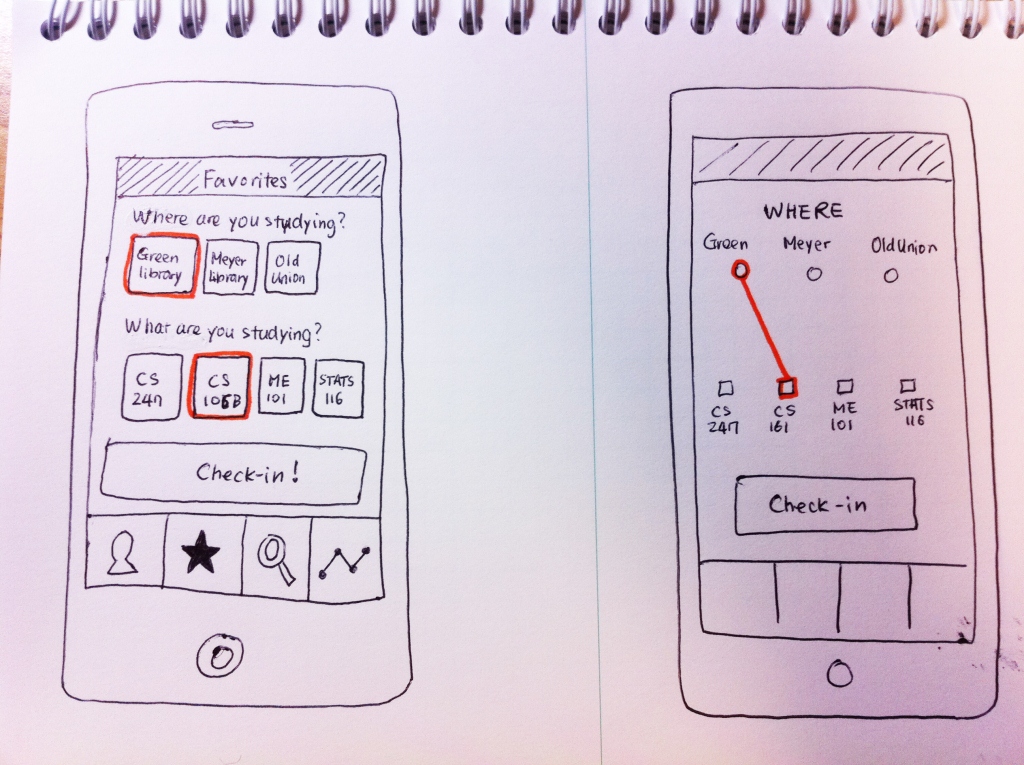 Favorites
Where are you studying?
Green library
Meyer library
Old Union
What are you studying?
CS 247
CS 106B
ME 101
STATS 116
Check-in!
WHERE
Green Meyer Old Union
CS 247
CS 161
ME 101
STATS 116
Check-in